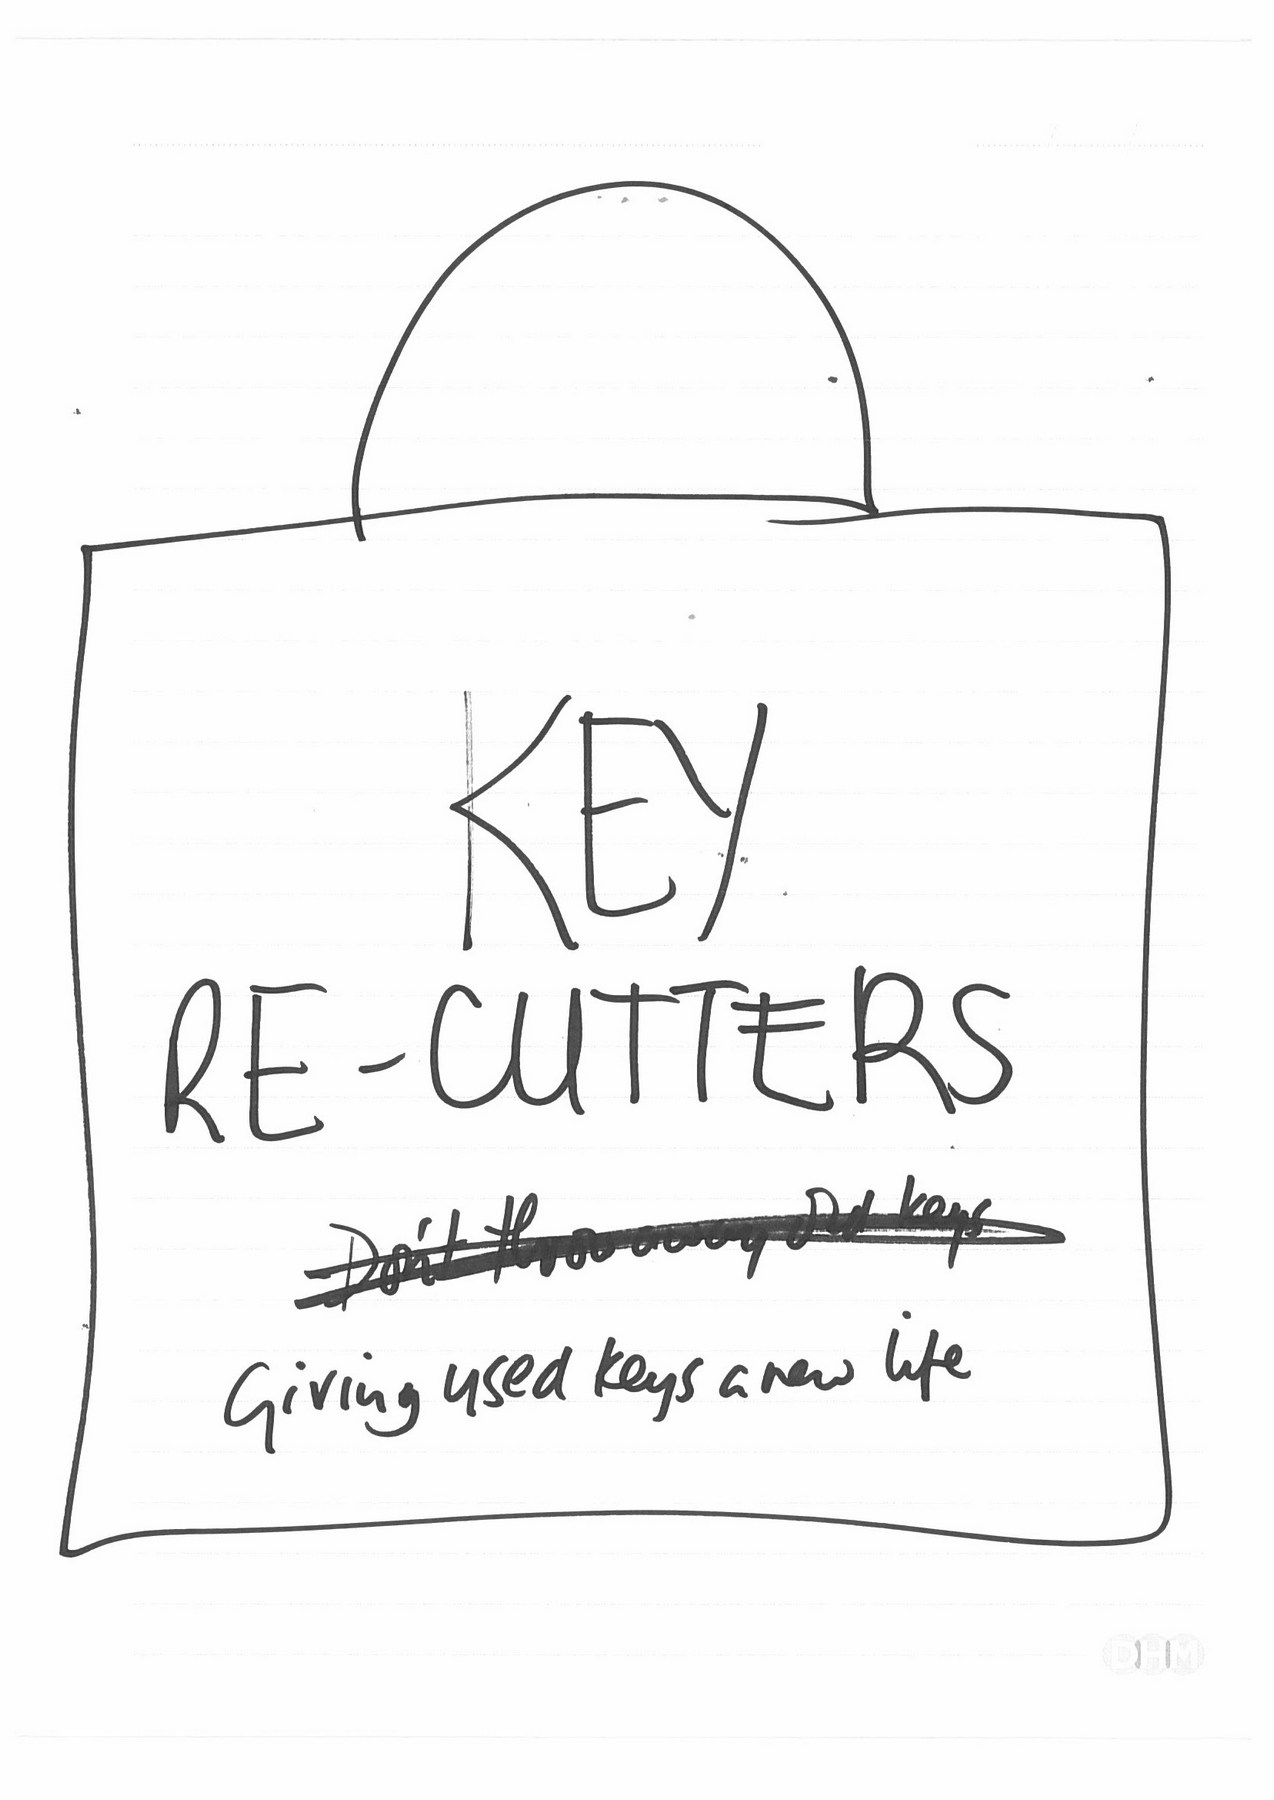 KEY
RE-CUTTERS
Don't throw away old keys
Giving used keys a new life
DHM